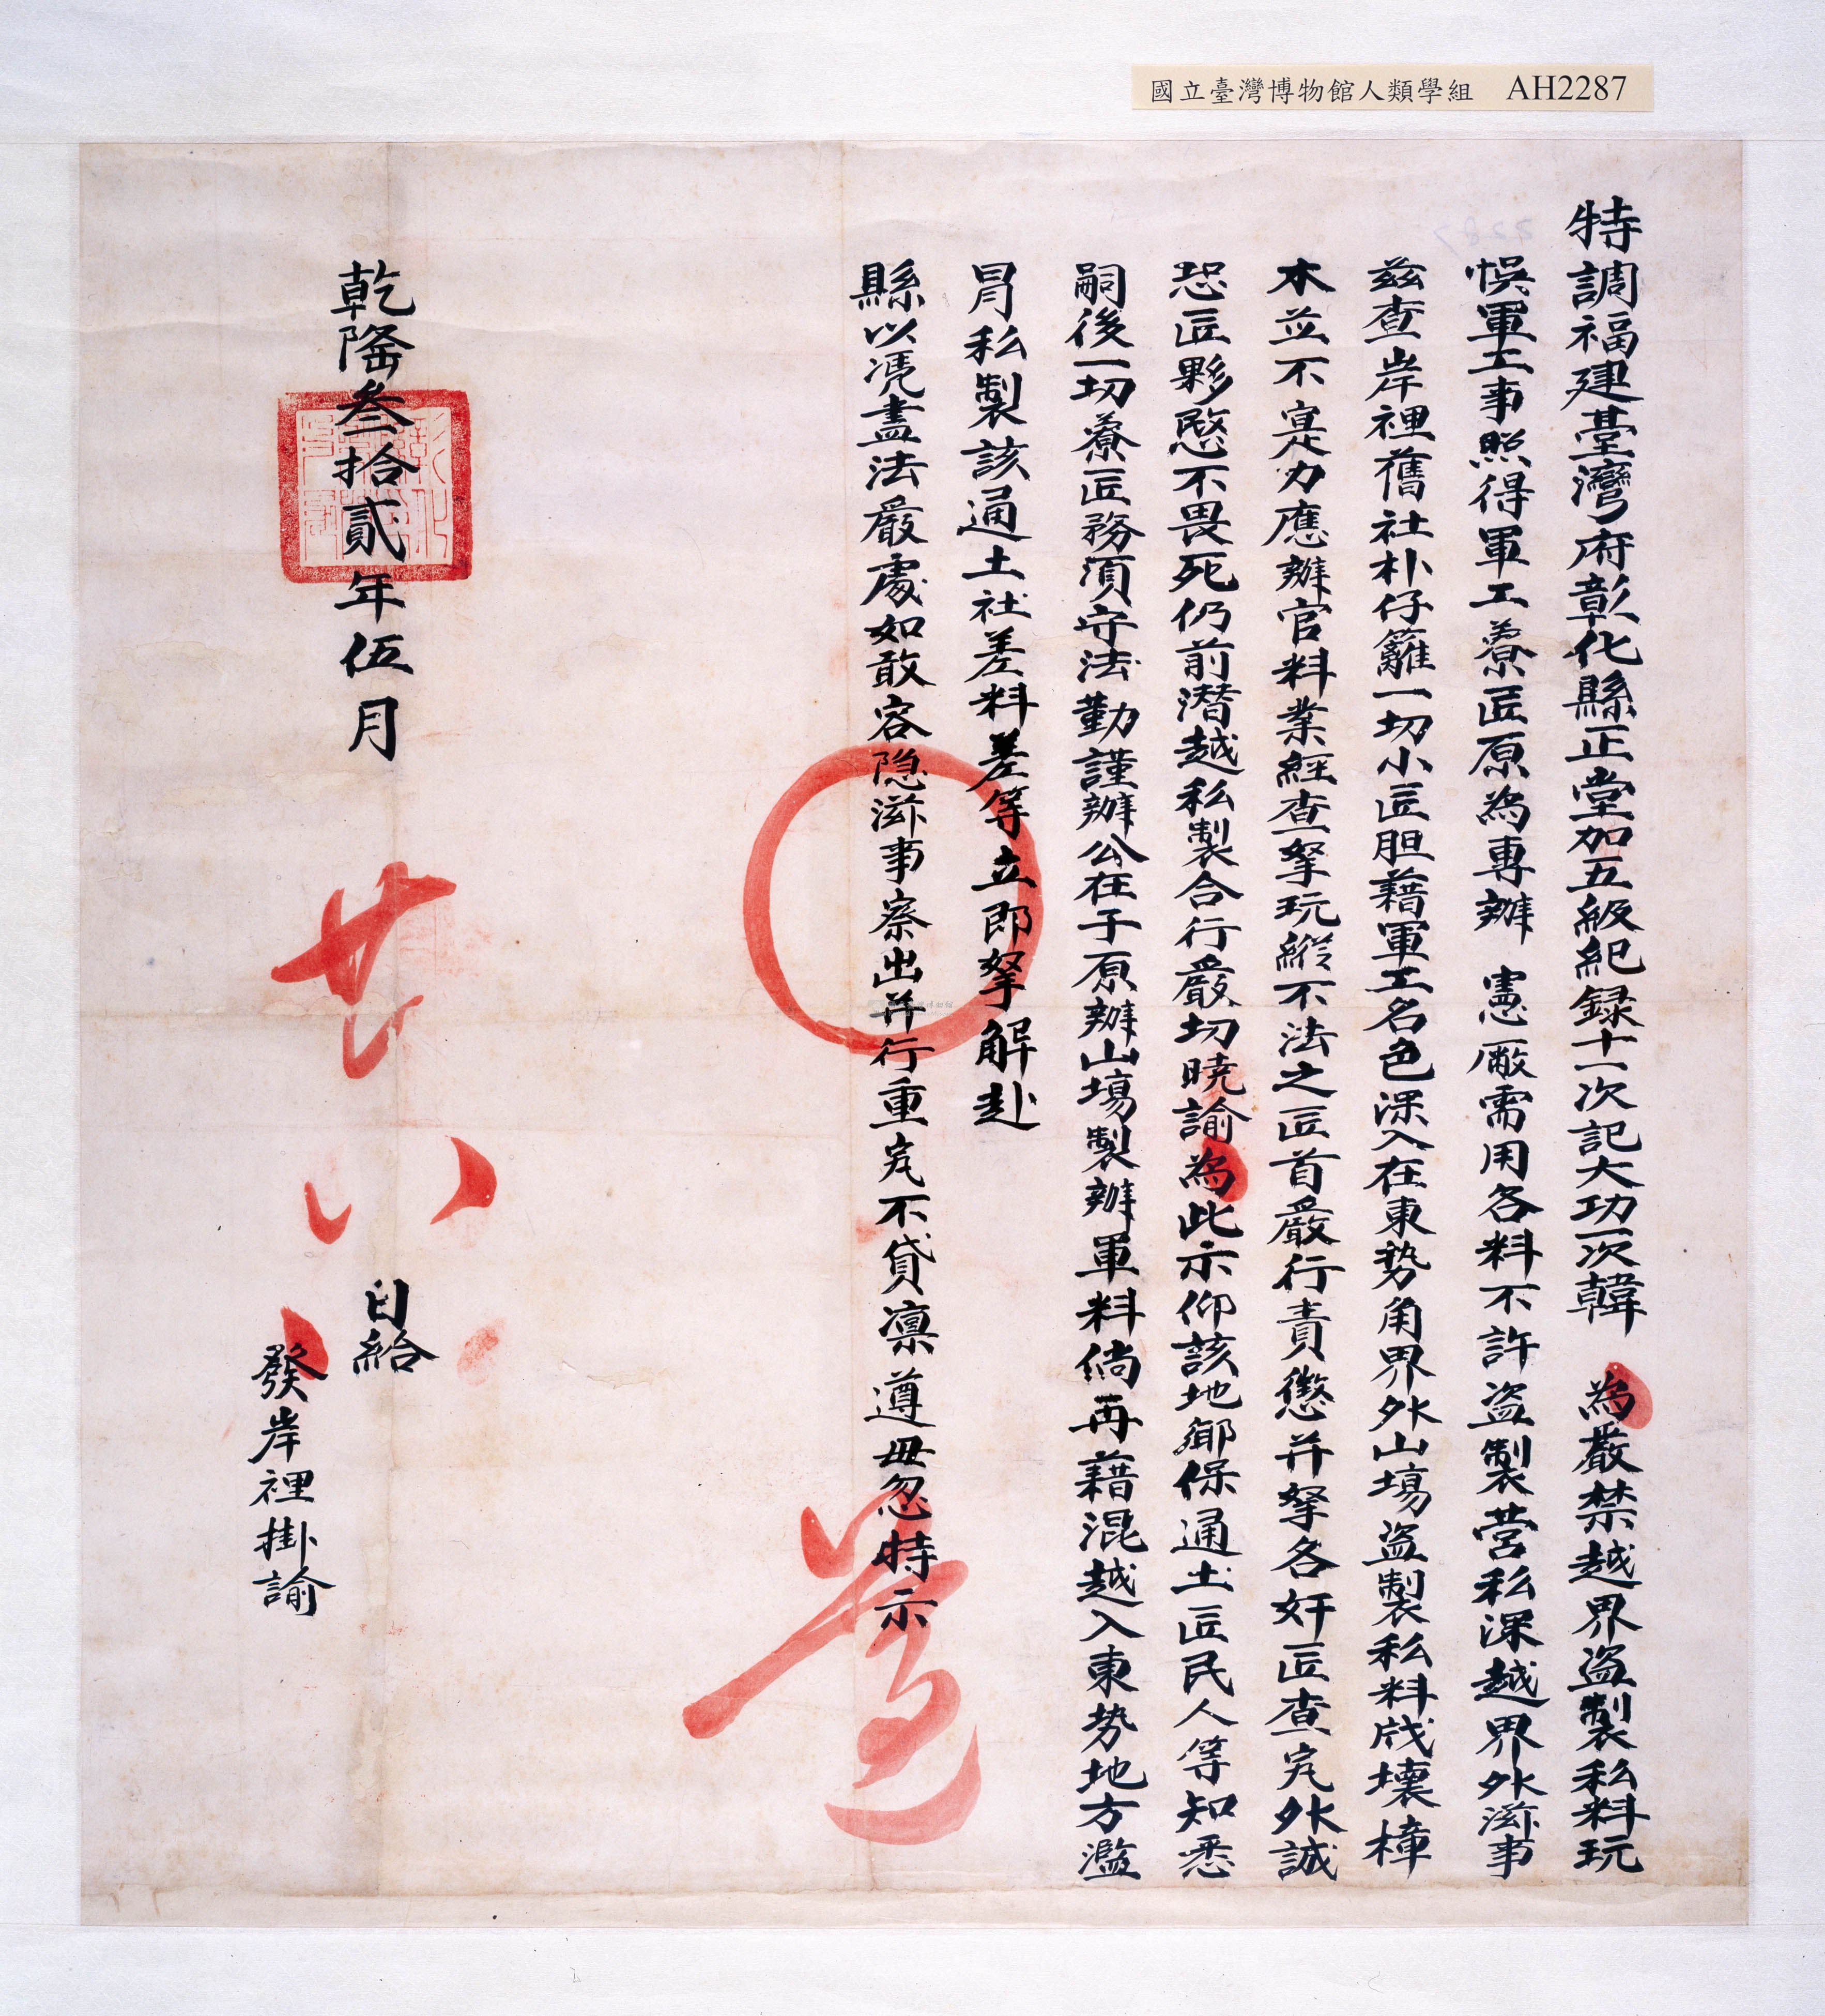 國立臺灣博物館人類學組 AH2287
特調福建臺灣府彰化縣正堂加五級紀録十一次記大功一次韓 為嚴禁越界盜製私料玩
悞軍工事照得軍工藔匠原為專辦 憲厰需用各料不許盜製營私深越界外滋事
茲查岸裡舊社朴仔籬一切小匠胆藉軍工名色深入在東勢角界外山塲盜製私料戕壞樟
木並不寔力應辦官料業經查拏玩縱不法之匠首嚴行責懲并拏各奸匠查究外誠
恐匠夥愍不畏死仍前潛越私製合行嚴切曉諭為此示仰該地鄉保通土匠民人等知悉
嗣後一切藔匠務須守法勤謹辦公在于原辦山塲製辦軍料倘再藉混越入東势地方濫
冐私製該通土社差料差等立即拏解赴
縣以凴盡法嚴處如敢容隐滋事察出并行重究不貸凛遵毋忽特示
遵
乾隆叁拾貳年伍月 廿八 日給
發岸裡掛諭